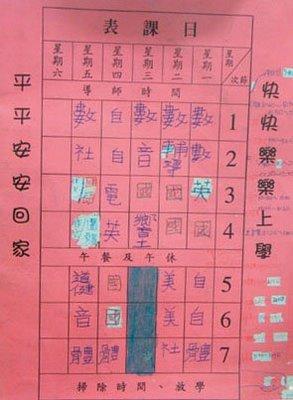 日課表
快快樂樂上學
平平安安回家
星期 節次
星期一 星期二 星期三 星期四 星期五 星期六
導師時間
1 數 數 數 自 數
2 數 音 自 社
3 英 國 國 電
4 國 國 鄉土 英
午餐及午休
5 自 美 國 健
6 自 美 國 音
7 體 社 體 體
掃除時間、放學